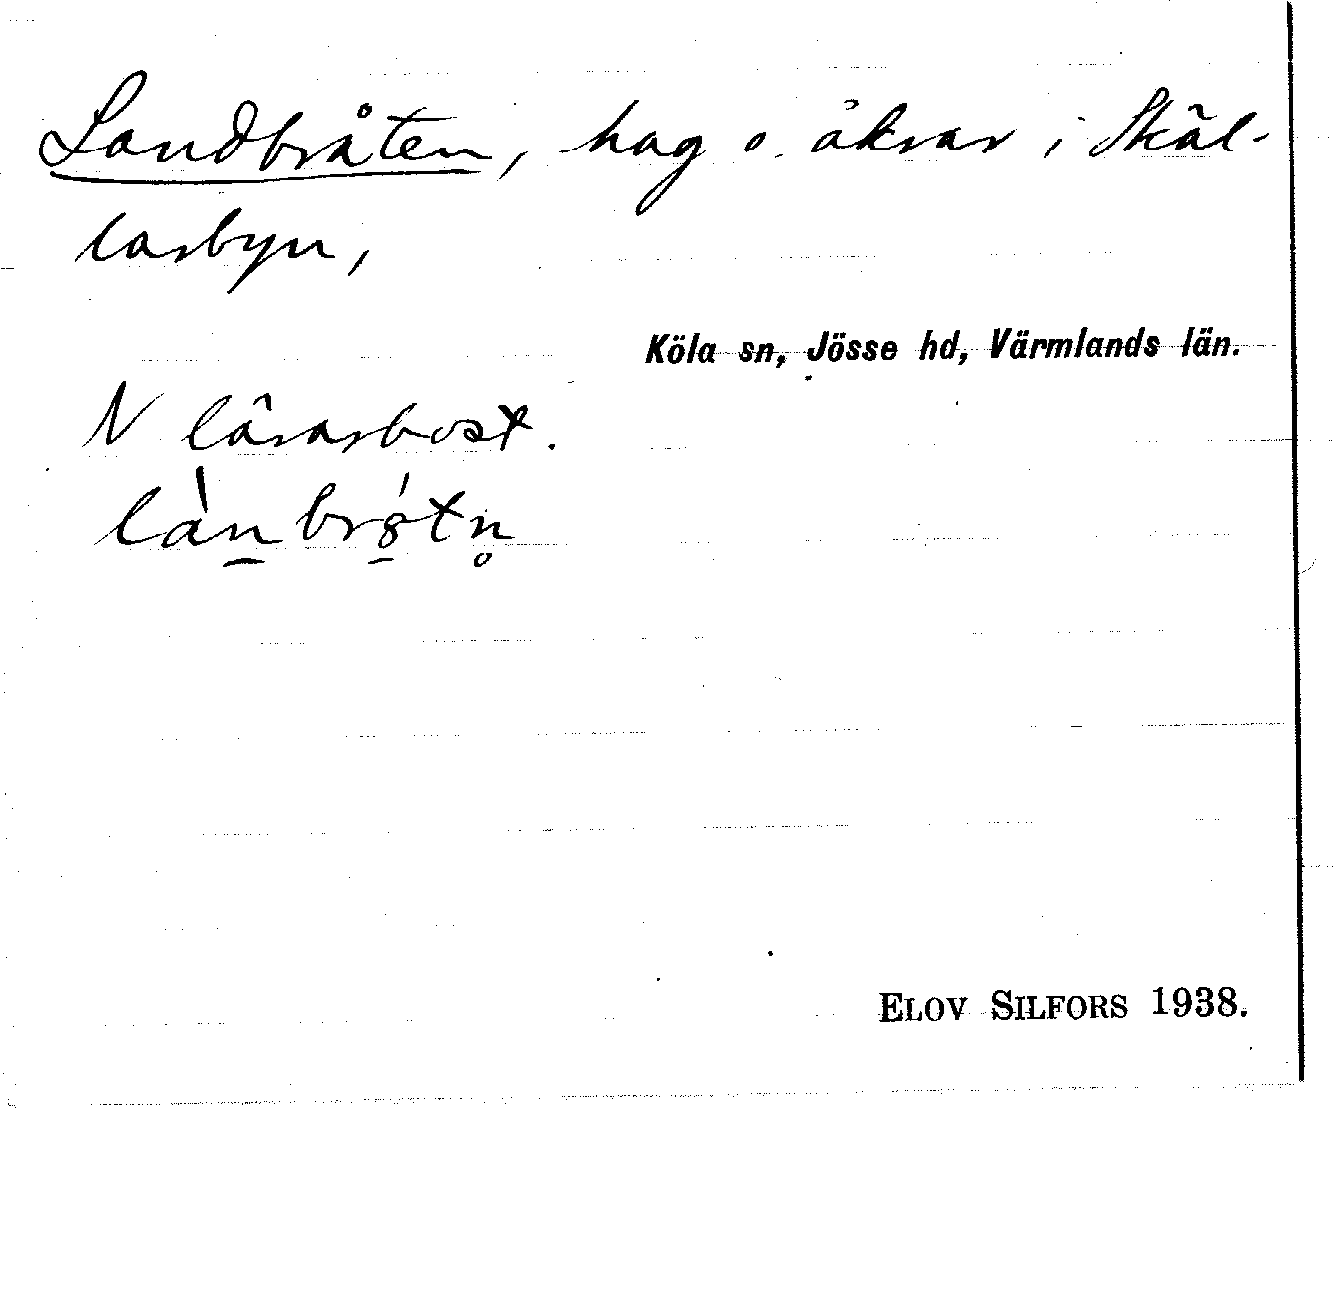 Landbråten, hag o. åkrar i Skäl-
larbyn,
Köla sn, Jösse hd, Värmlands län.
N lärarbost.
lànbrśtn̥
ELOV SILFORS 1938.